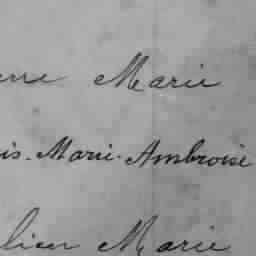 Marie
is. Marie. Ambroise
lien Marie